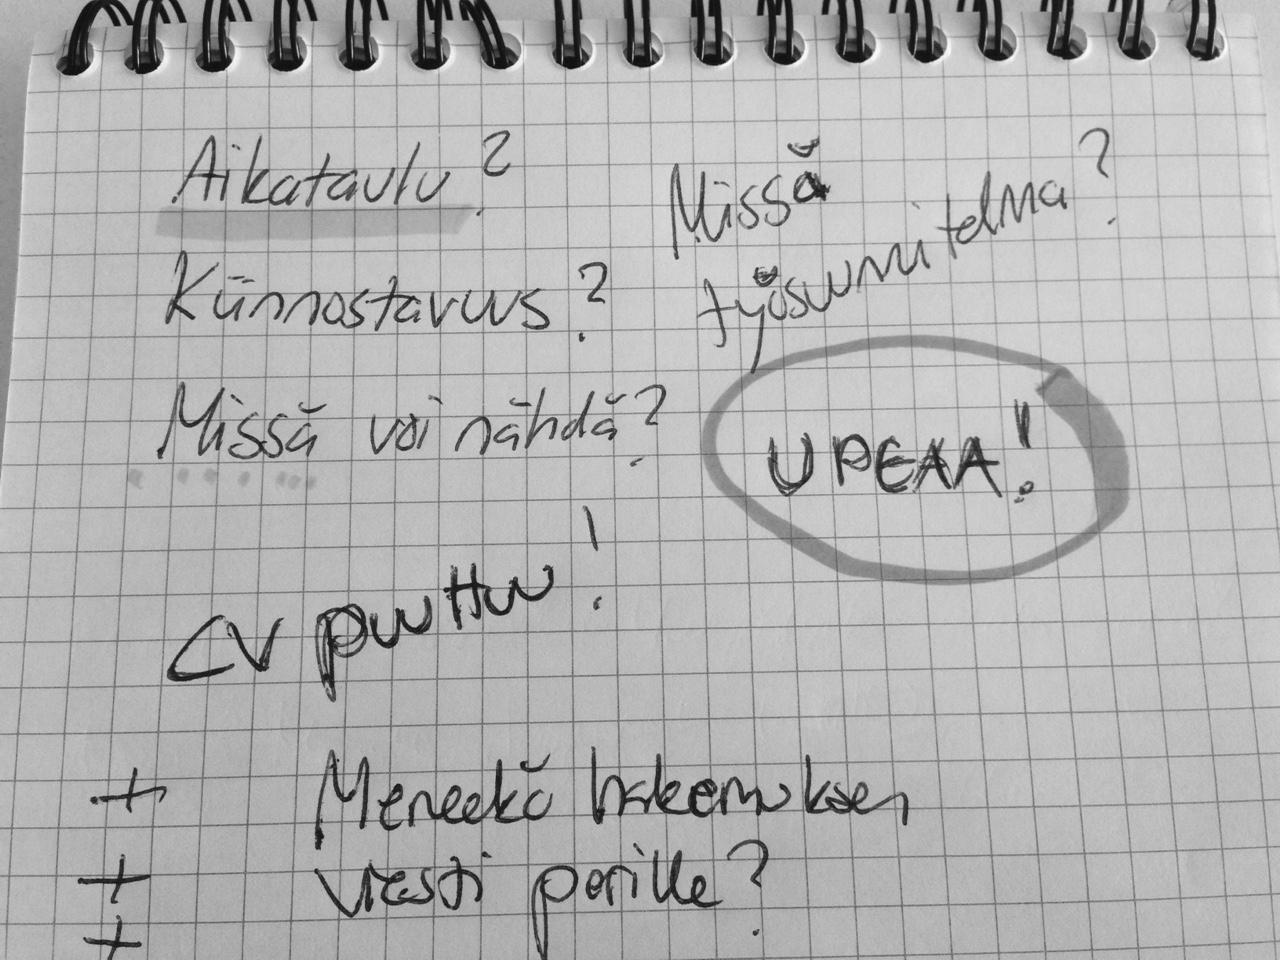 Aikataulu?
Kiinnostavuus?
Missä voi nähdä?
Missä
työsuunnitelma?
UPEAA!
CV puuttuu!
+ Meneekö hakemuksen
+ viesti perille?
+